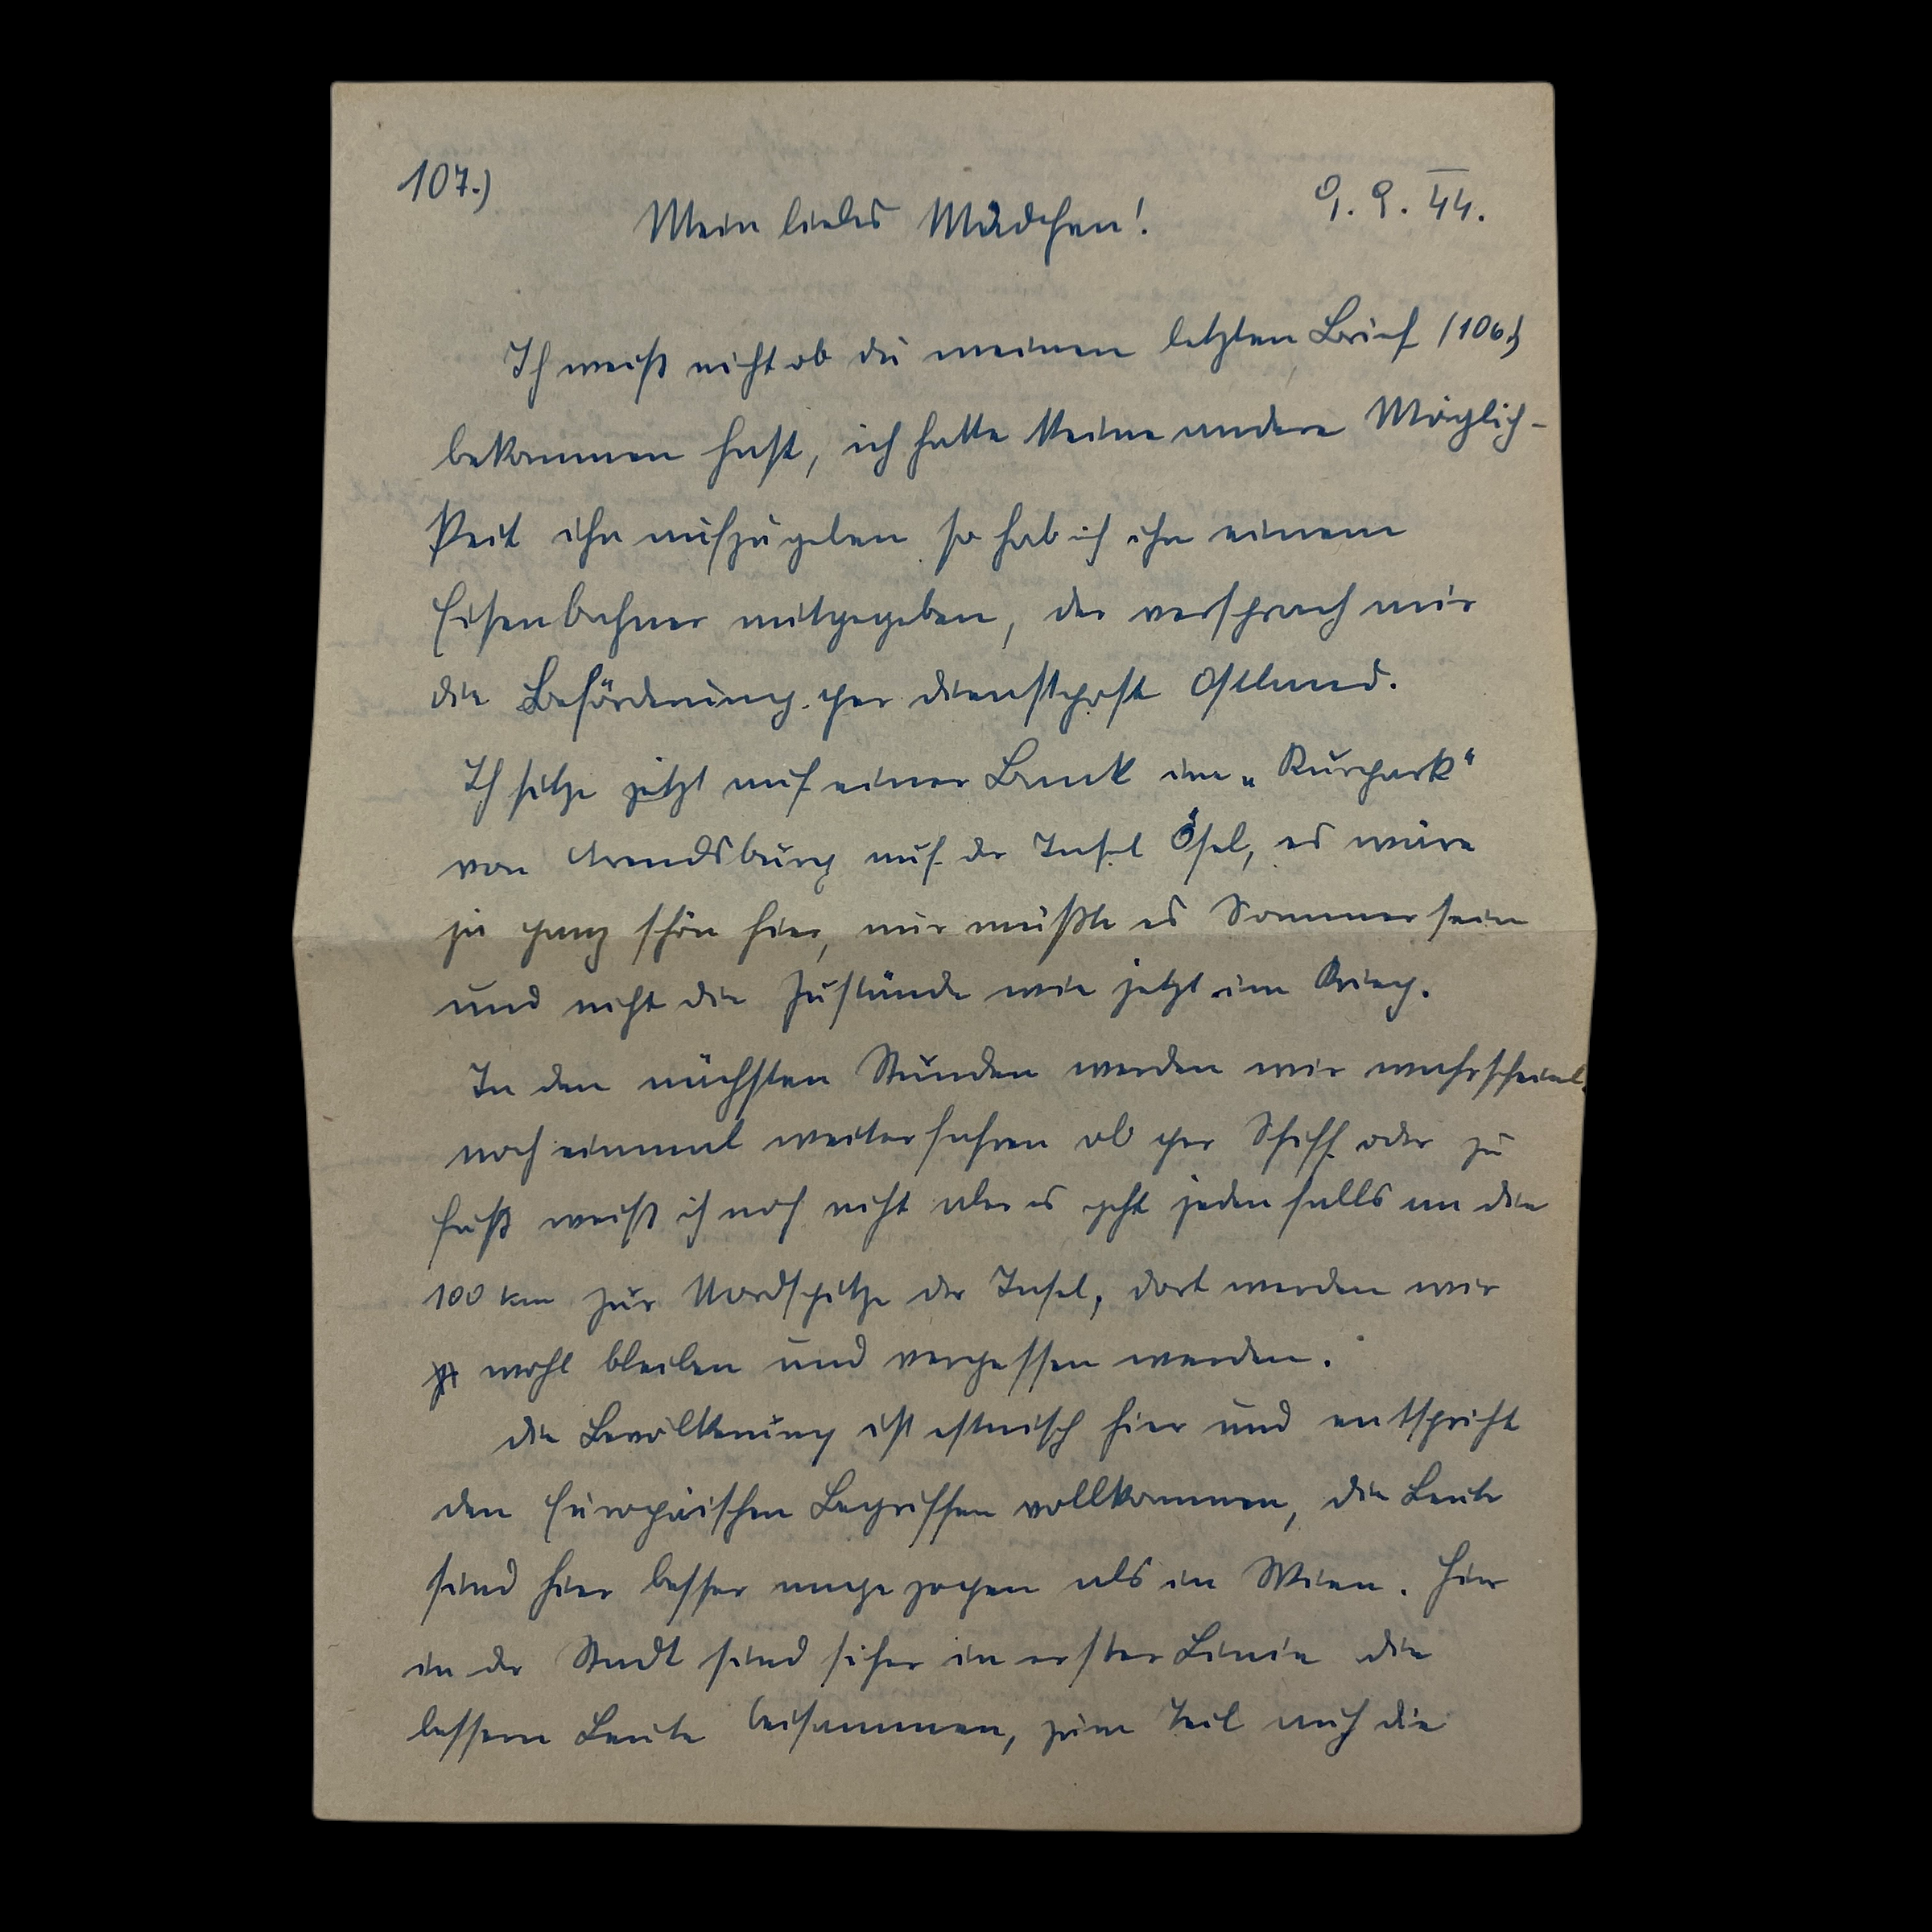 107.)
9. 9. 44.
Mein liebes Mädchen!
Ich weiß nicht ob du meinen letzten Brief (106.)
bekommen hast, ich hatte keine andere Möglich-
keit ihn aufzugeben so hab ich ihn einem
Eisenbahner mitgegeben, der versprach mir
die Beförderung per Dienstpost Ostland.
Ich sitze jetzt auf einer Bank im „Kurpark“
von Arendsburg auf der Insel Ösel, es wäre
ja ganz schön hier, nur müßte es Sommer sein
und nicht die Zustände wie jetzt im Krieg.
In den nächsten Stunden werden wir wahrscheinl.
noch einmal weiterfahren ob per Schiff oder zu
Fuß weiß ich noch nicht aber es geht jedenfalls an die
100 km zur Nordspitze der Insel, dort werden wir
wohl bleiben und vergessen werden.
Die Bevölkerung ist estnisch hier und entspricht
den Europäischen Begriffen vollkommen, die Leute
sind hier besser angezogen als in Wien. Hier
in der Stadt sind sicher in erster Linie die
bessern Leute beisammen, zum Teil auch die